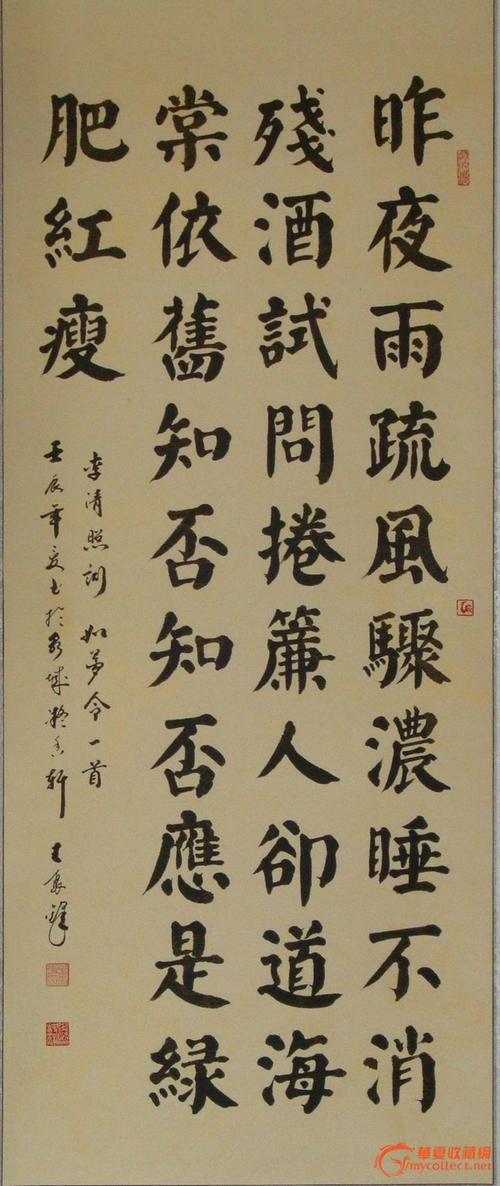 昨夜雨疏風驟濃睡不消
殘酒試問捲簾人卻道海
棠依舊知否知否應是綠
肥紅瘦
李清照詞如夢令一首
壬辰年夏書於泉城
軒
華夏收藏網
mycollect.net